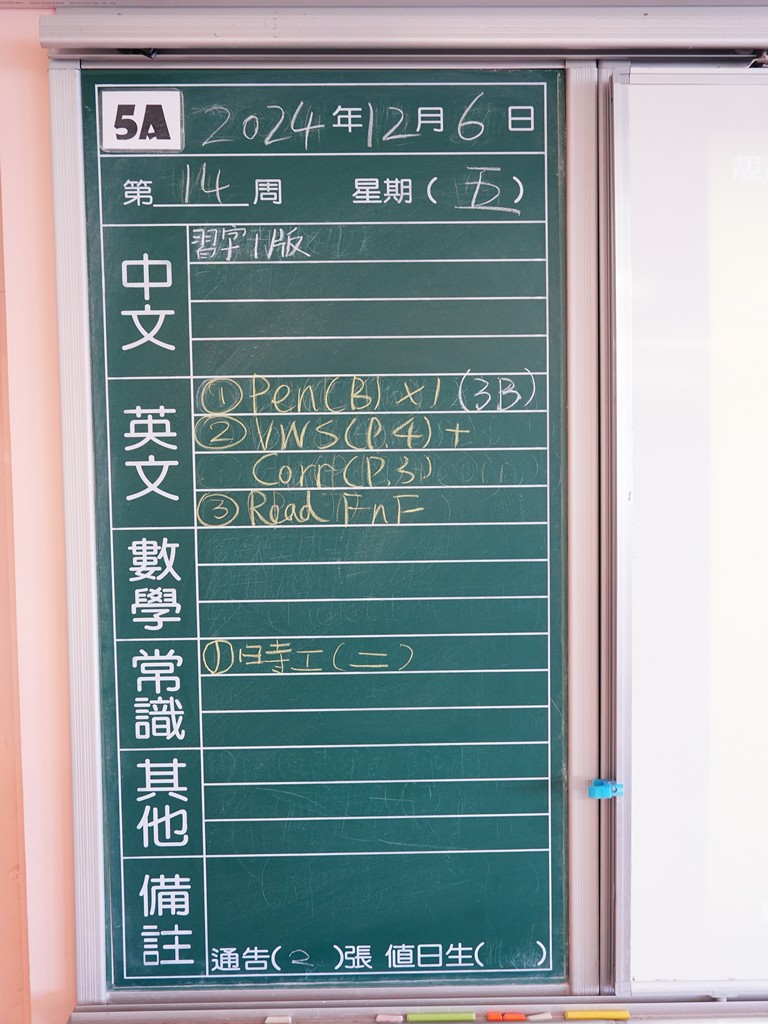 5A 2024年12月6日
第14周 星期(五)
中文
習字1版
英文
① Pen(B) x1 (3B)
② VWS(P.4) +
Corr(P.3)
③ Read FnF
數學
常識
①時工(二)
其他
備註
通告(2)張 值日生( )